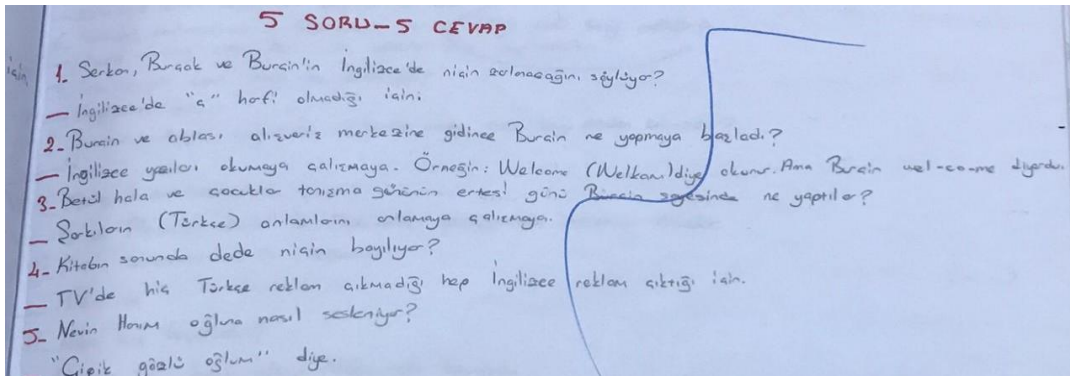 5 SORU-5 CEVAP
1- Serkan, Burçak ve Burçin'in İngilizce'de niçin söylüyor?
— İngilizce'de "ç" harfi olmadığı için.
2- Burçin ve ablası alışveriş merkezine gidince Burçin ne yapmaya başladı?
— İngilizce yazıları okumaya çalışmaya. Örneğin: Welcome (Welkam) diye okunur. Ama Burçin wel-co-me diyordu.
3- Betül hala ve çocuklar tanışma gününün ertesi günü Burçin sayesinde ne yaptılar?
— Şarkıların (Türkçe) anlamlarını anlamaya çalışmaya.
4- Kitabın sonunda dede niçin bayılıyor?
— TV'de hiç Türkçe reklam çıkmadığı hep İngilizce reklam çıktığı için.
5- Nevin Hanım oğluna nasıl sesleniyor?
"Çipik gözlü oğlum" diye.